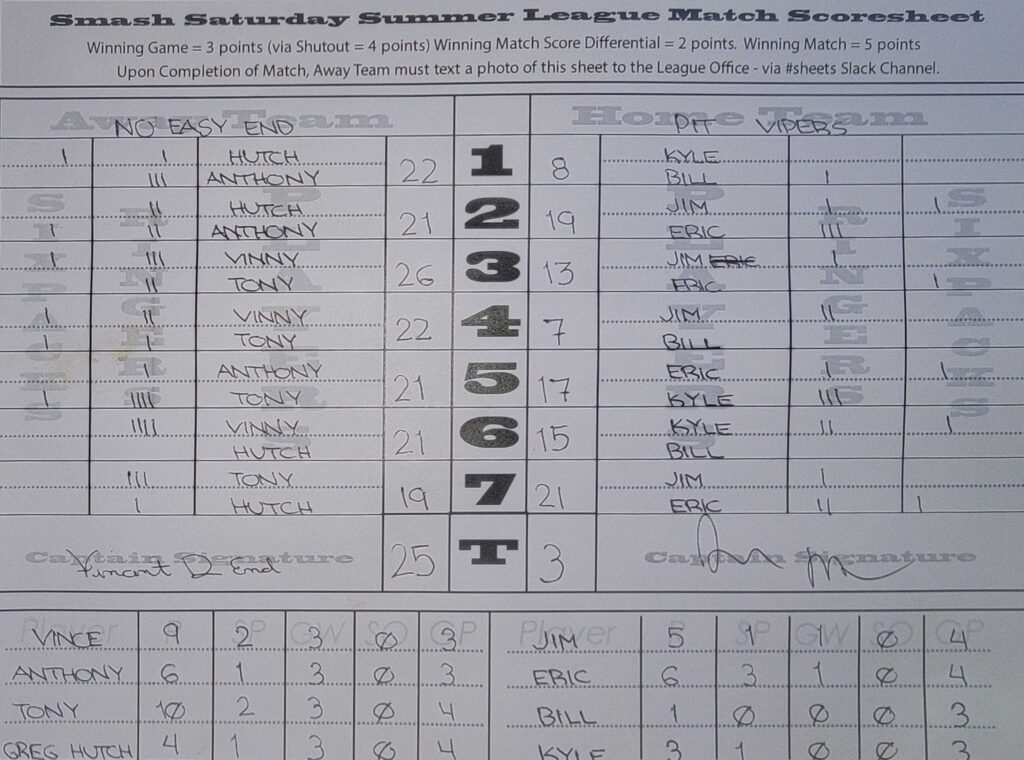 Smash Saturday Summer League Match Scoresheet
Winning Game = 3 points (via Shutout = 4 points) Winning Match Score Differential = 2 points. Winning Match = 5 points
Upon Completion of Match, Away Team must text a photo of this sheet to the League Office - via #sheets Slack Channel.
Away Team Home Team
NO EASY END PIT VIPERS
SIXPACKS RINGERS PLAYERS PLAYERS RINGERS SIXPACKS
I I HUTCH 22 1 8 KYLE
III ANTHONY BILL I
II HUTCH 21 2 19 JIM I I
I II ANTHONY ERIC III
I III VINNY 26 3 13 JIM ERIC I
II TONY ERIC I
I II VINNY 22 4 7 JIM II
I I TONY BILL
I ANTHONY 21 5 17 ERIC I I
I IIII TONY KYLE III
IIII VINNY 21 6 15 KYLE II I
HUTCH BILL
III TONY 19 7 21 JIM I
I HUTCH ERIC II I
Captain Signature 25 T 3 Captain Signature
Vincent D End
Player SP GW SO GP Player SP GW SO GP
VINCE 9 2 3 0 3 JIM 5 1 1 0 4
ANTHONY 6 1 3 0 3 ERIC 6 3 1 0 4
TONY 10 2 3 0 4 BILL 1 0 0 0 3
GREG HUTCH 4 1 3 0 4 KYLE 3 1 0 0 3